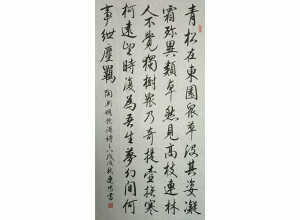 青松在東園眾草沒其姿凝
霜殄異類卓然見高枝連林
人不覺獨樹眾乃奇提壺撫寒
柯遠望時復為吾生夢幻間何
事紲塵羈
陶淵明飲酒詩之八戊戌秋書